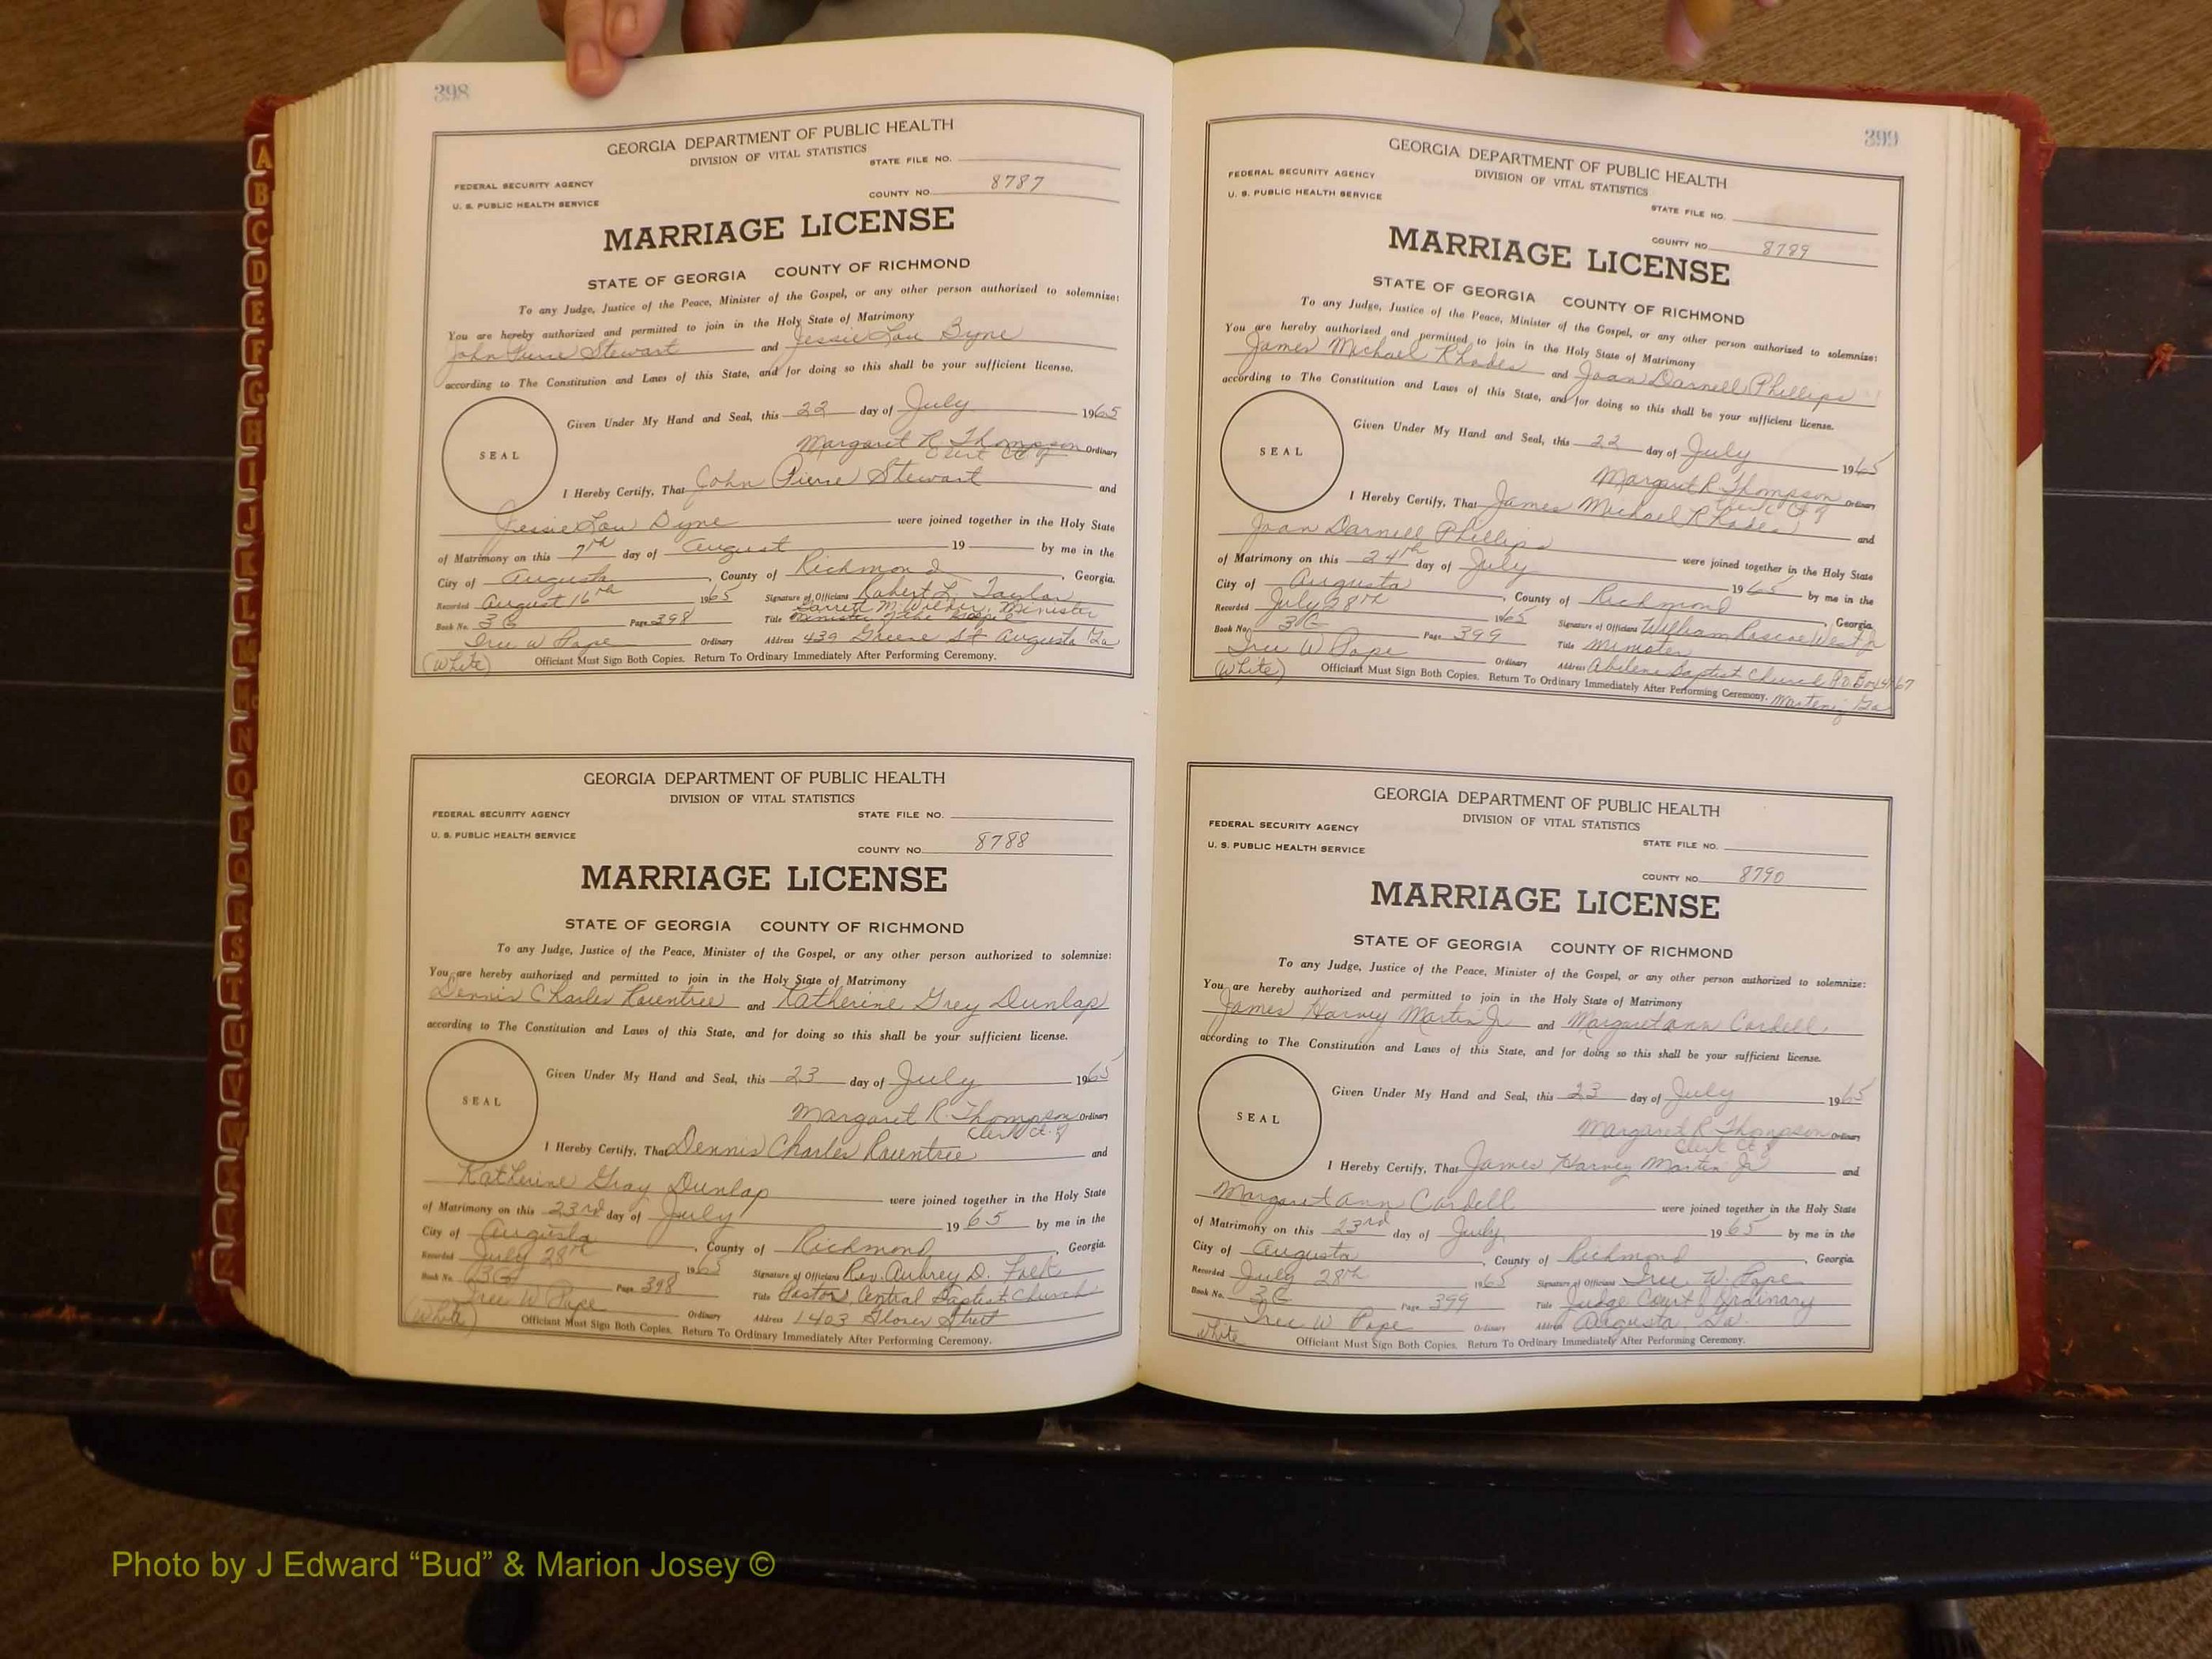 398
GEORGIA DEPARTMENT OF PUBLIC HEALTH
DIVISION OF VITAL STATISTICS
STATE FILE NO.
FEDERAL SECURITY AGENCY
U. S. PUBLIC HEALTH SERVICE
COUNTY NO. 8787
MARRIAGE LICENSE
STATE OF GEORGIA COUNTY OF RICHMOND
To any Judge, Justice of the Peace, Minister of the Gospel, or any other person authorized to solemnize:
You are hereby authorized and permitted to join in the Holy State of Matrimony
John Pierre Stewart and Jessie Lou Byne
according to The Constitution and Laws of this State, and for doing so this shall be your sufficient license.
Given Under My Hand and Seal, this 22 day of July 1965
SEAL
Margaret R. Thompson Ordinary
I Hereby Certify, That John Pierre Stewart and
Jessie Lou Byne were joined together in the Holy State
of Matrimony on this 7th day of August 19 by me in the
City of Augusta, County of Richmond, Georgia.
Recorded August 16th 1965 Signature of Officiant Robert L. Taylor
Book No. 3G Page 398 Title Minister
Ordinary Address 439 Greene St Augusta Ga
(White) Officiant Must Sign Both Copies. Return To Ordinary Immediately After Performing Ceremony.
GEORGIA DEPARTMENT OF PUBLIC HEALTH
DIVISION OF VITAL STATISTICS
FEDERAL SECURITY AGENCY STATE FILE NO.
U. S. PUBLIC HEALTH SERVICE
COUNTY NO. 8788
MARRIAGE LICENSE
STATE OF GEORGIA COUNTY OF RICHMOND
To any Judge, Justice of the Peace, Minister of the Gospel, or any other person authorized to solemnize:
You are hereby authorized and permitted to join in the Holy State of Matrimony
Dennis Charles Rountree and Katherine Grey Dunlap
according to The Constitution and Laws of this State, and for doing so this shall be your sufficient license.
Given Under My Hand and Seal, this 23 day of July 1965
SEAL
Margaret R. Thompson Ordinary
Clerk Ct. of
I Hereby Certify, That Dennis Charles Rountree and
Katherine Gray Dunlap were joined together in the Holy State
of Matrimony on this 23rd day of July 1965 by me in the
City of Augusta, County of Richmond, Georgia.
Recorded July 28th 1965 Signature of Officiant Rev. Aubrey D.
Book No. 3G Page 398 Title Pastor, Central Baptist Church
W Pope Ordinary Address 1403 Glover Street
(White) Officiant Must Sign Both Copies. Return To Ordinary Immediately After Performing Ceremony.
399
GEORGIA DEPARTMENT OF PUBLIC HEALTH
DIVISION OF VITAL STATISTICS
FEDERAL SECURITY AGENCY
U. S. PUBLIC HEALTH SERVICE
STATE FILE NO.
COUNTY NO. 8789
MARRIAGE LICENSE
STATE OF GEORGIA COUNTY OF RICHMOND
To any Judge, Justice of the Peace, Minister of the Gospel, or any other person authorized to solemnize:
You are hereby authorized and permitted to join in the Holy State of Matrimony
James Michael Rhodes and Joan Darnell Phillips
according to The Constitution and Laws of this State, and for doing so this shall be your sufficient license.
Given Under My Hand and Seal, this 22 day of July 1965
SEAL
Margaret R Thompson Ordinary
Clerk Ct of
I Hereby Certify, That James Michael Rhodes and
Joan Darnell Phillips were joined together in the Holy State
of Matrimony on this 24th day of July 1965 by me in the
City of Augusta, County of Richmond, Georgia.
Recorded July 28th 1965 Signature of Officiant William Roscoe West Jr
Book No. 3G Page 399 Title Minister
W Pope Ordinary Address Abilene Baptist Church P.O. Box
(White) Officiant Must Sign Both Copies. Return To Ordinary Immediately After Performing Ceremony. Martinez Ga
GEORGIA DEPARTMENT OF PUBLIC HEALTH
DIVISION OF VITAL STATISTICS
FEDERAL SECURITY AGENCY
U. S. PUBLIC HEALTH SERVICE
STATE FILE NO.
COUNTY NO. 8790
MARRIAGE LICENSE
STATE OF GEORGIA COUNTY OF RICHMOND
To any Judge, Justice of the Peace, Minister of the Gospel, or any other person authorized to solemnize:
You are hereby authorized and permitted to join in the Holy State of Matrimony
James Harvey Martin Jr and Margaret Ann Cordell
according to The Constitution and Laws of this State, and for doing so this shall be your sufficient license.
Given Under My Hand and Seal, this 23 day of July 1965
SEAL
Margaret R Thompson Ordinary
Clerk Ct of
I Hereby Certify, That James Harvey Martin Jr and
Margaret Ann Cordell were joined together in the Holy State
of Matrimony on this 23rd day of July 1965 by me in the
City of Augusta, County of Richmond, Georgia.
Recorded July 28th 1965 Signature of Officiant W. Pope
Book No. 3G Page 399 Title Judge Court of Ordinary
W Pope Ordinary Address Augusta, Ga.
White Officiant Must Sign Both Copies. Return To Ordinary Immediately After Performing Ceremony.
A
B
C
D
E
F
G
H
I
J
K
L
M
Mc
N
O
P
Q
R
S
T
U
V
W
Photo by J Edward “Bud” & Marion Josey ©